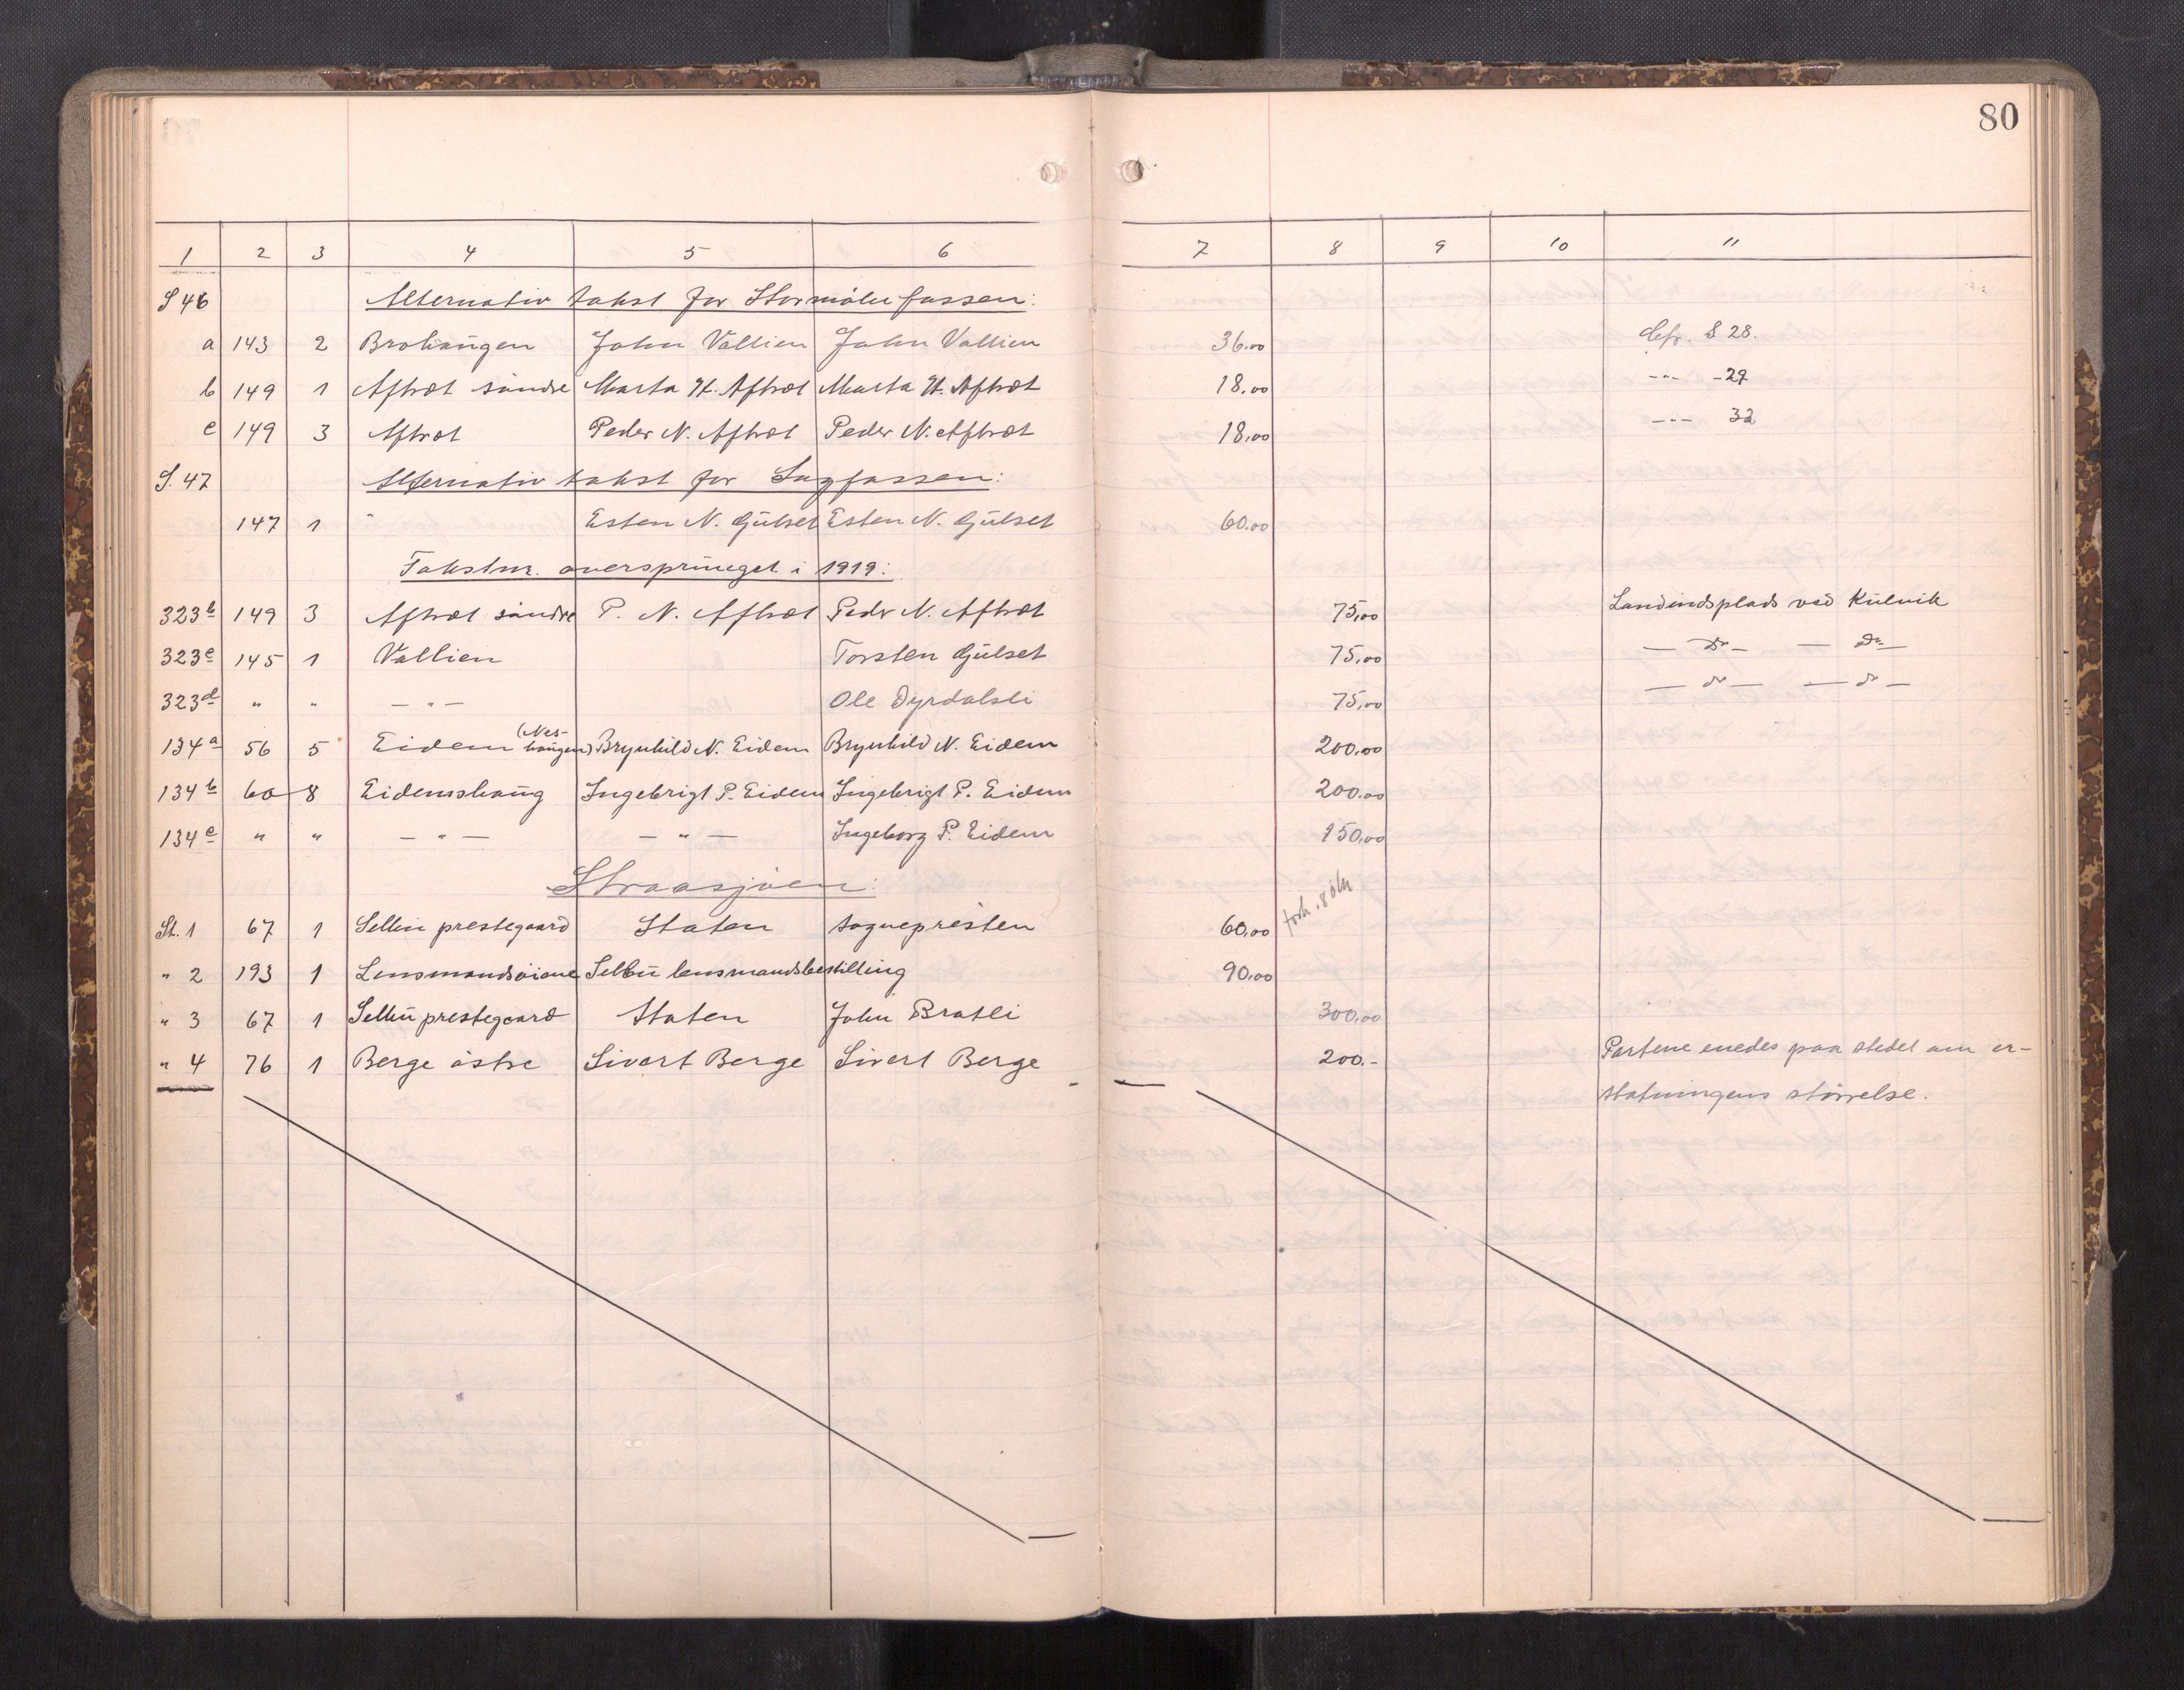 80
1 2 3 4 5 6 7 8 9 10 11
S 46 Alternativ takst for Stormølnfossen:
a 143 2 Brohaŭgen John Vallien John Vallien 36.00 Cfr. S 28.
b 149 1 Aftret søndre Marta H. Aftret Marta H. Aftret 18.00 -"- -29
c 149 3 Aftret Peder N. Aftret Peder N. Aftret 18.00 --- 32
S. 47 Alternativ takst for Sagfossen:
147 1 " Esten N. Gŭlset Esten N. Gŭlset 60.00
Takstnr. oversprŭnget i 1919:
323b 149 3 Aftret søndre P. N. Aftret Pedr N. Aftret 75,00 Landindsplads ved Kŭlvik
323c 145 1 Vallien Torsten Gŭlset 75,00 — Do — — Do —
323d " " — " — Ole Dyrdalsli 75,00 — do — — do —
134a 56 5 Eidem (Nes-haŭgen) Brynhild N. Eidem Brynhild N. Eidem 200.00
134b 60 8 Eidemshaŭg Ingebrigt P. Eidem Ingebrigt P. Eidem 200.00
134c " " — " — — " — Ingeborg P. Eidem 150,00
Straasjøen:
St. 1 67 1 Selbŭ prestegaard Staten sognepresten 60,00
" 2 193 1 Lensmandsøiane Selbŭ lensmandsbestilling 90.00
" 3 67 1 Selbŭ prestegaard Staten John Bratli 300.00
" 4 76 1 Berge østre Sivert Berge Sivert Berge 200.- Partene enedes paa stedet om er-
statningens størrelse.